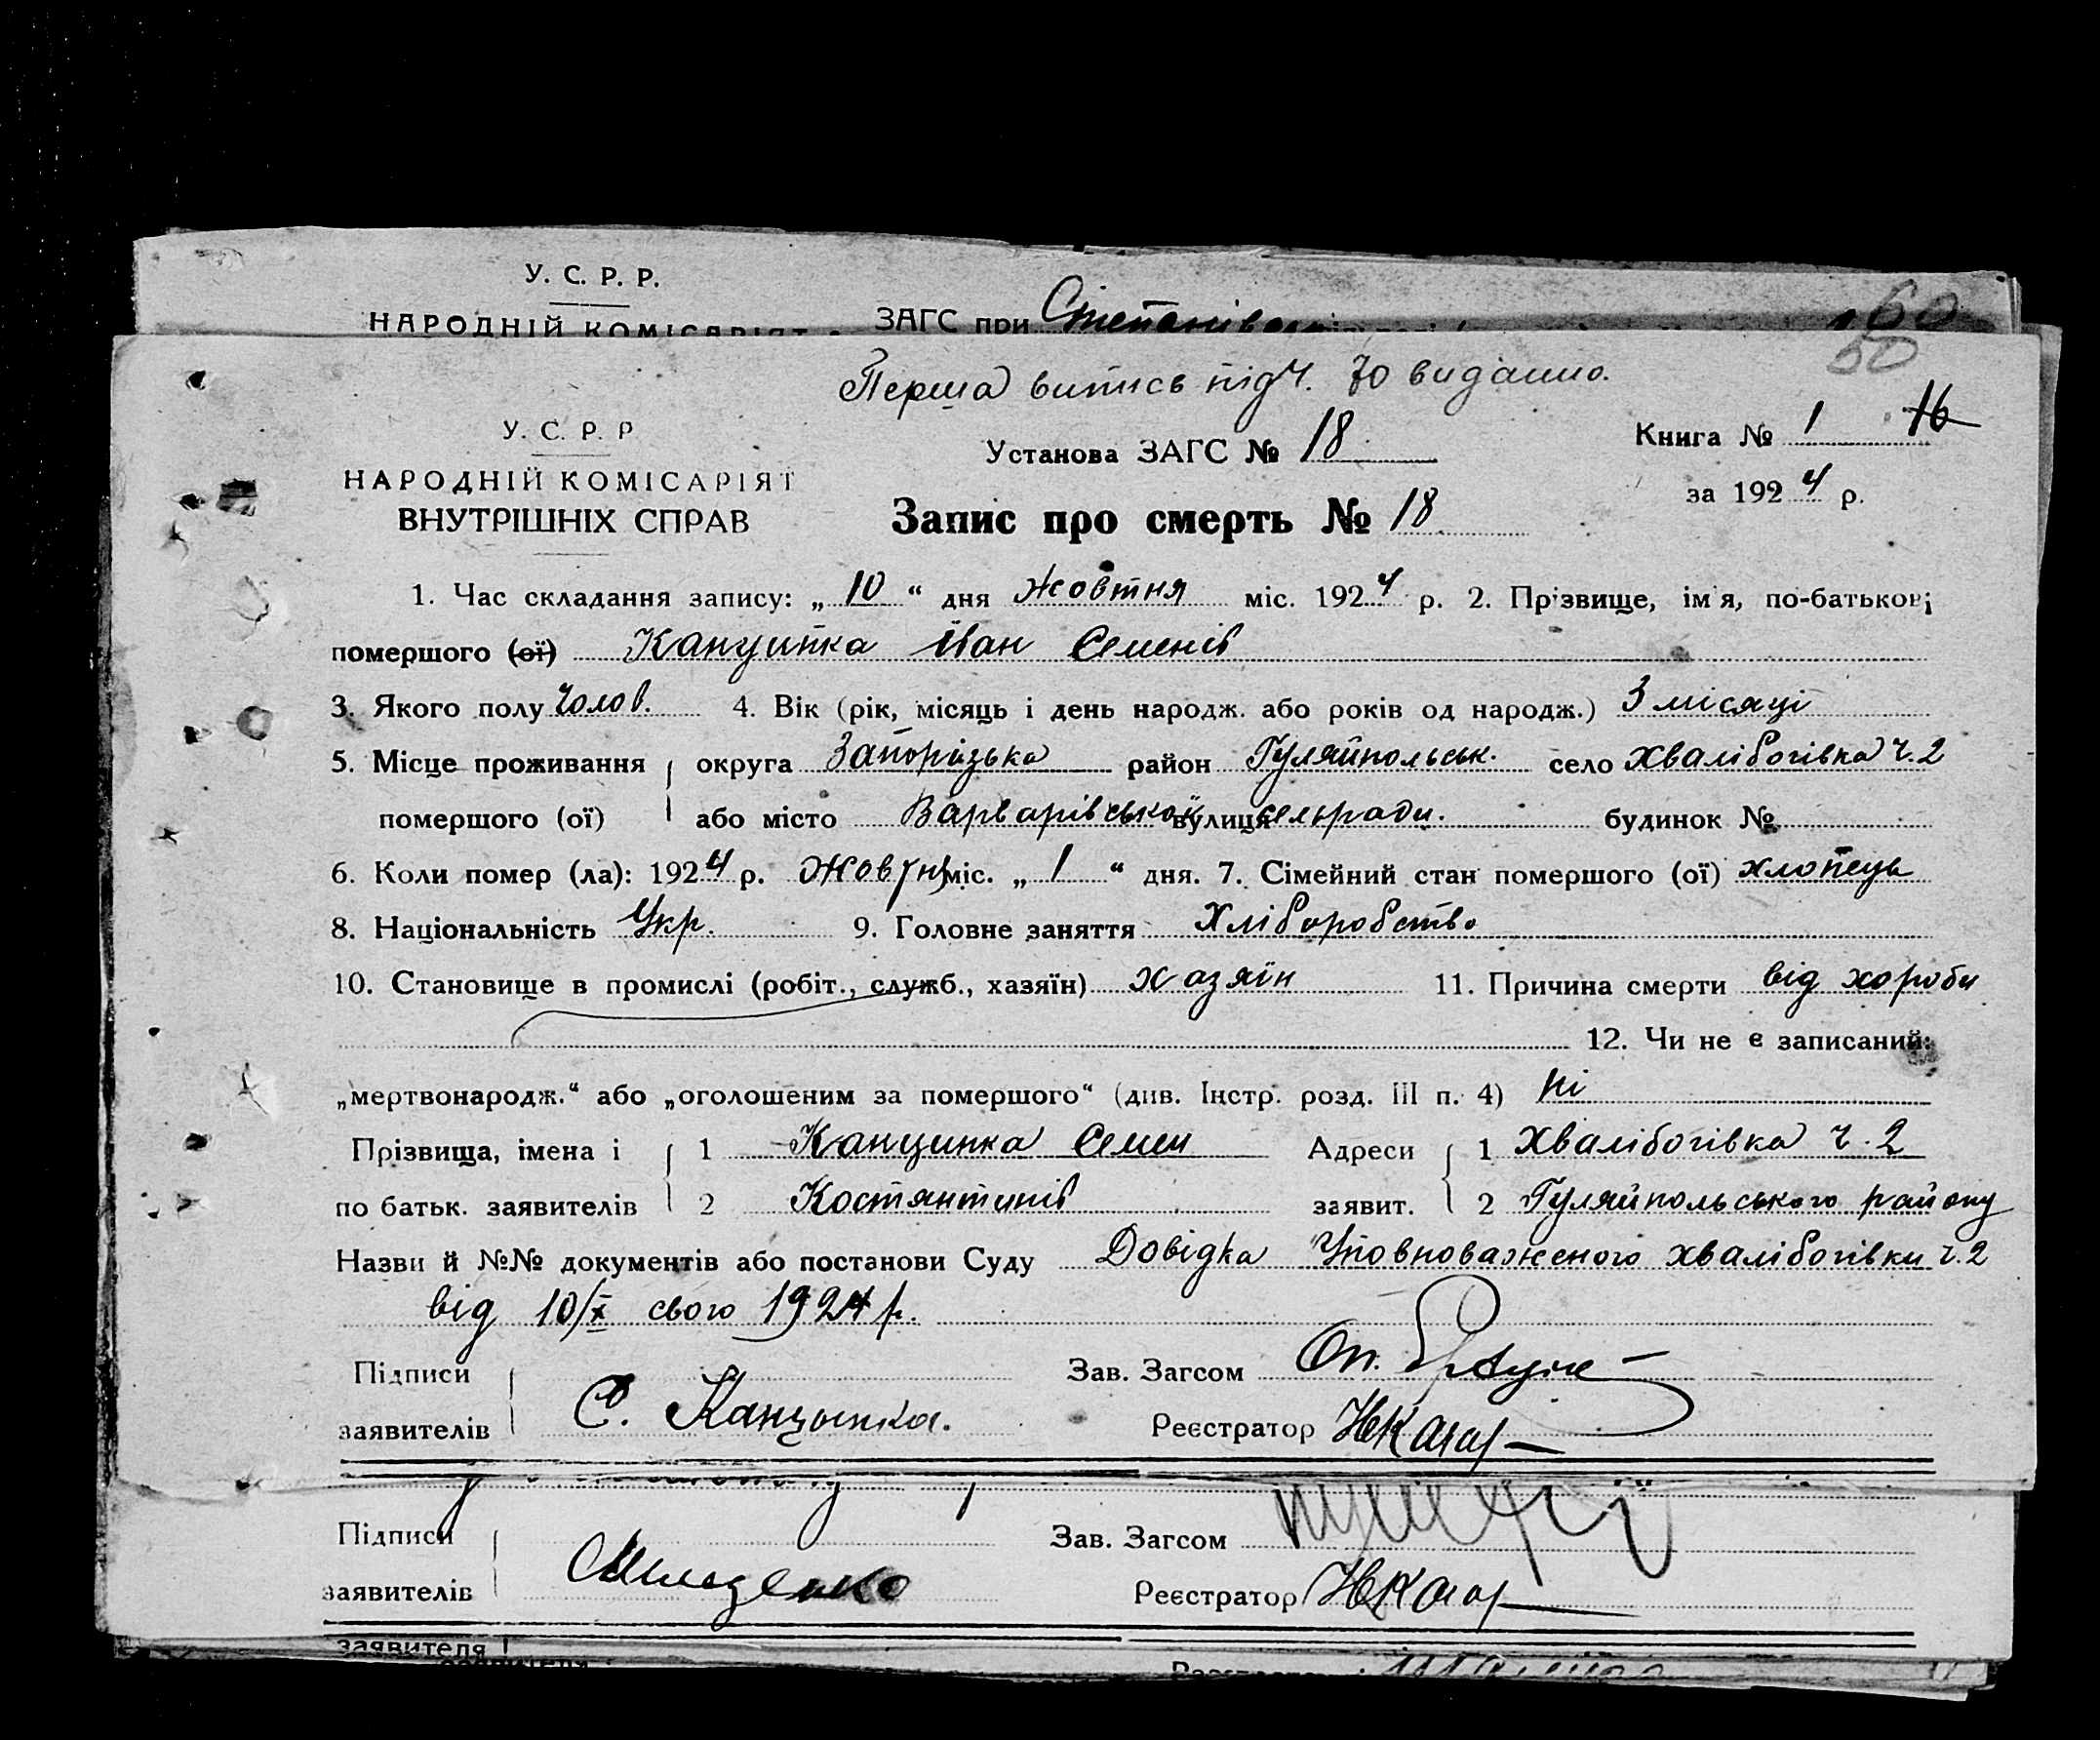 У. С. Р. Р.
НАРОДНІЙ КОМІСАРІЯТ ЗАГС при
60
50
Перша випись під Ч. 70 видано.
У. С. Р. Р
НАРОДНІЙ КОМІСАРІЯТ
ВНУТРІШНІХ СПРАВ
Установа ЗАГС № 18
Книга № 1 16
за 1924 р.
Запис про смерть № 18
1. Час складання запису: „ 10 “ дня Жовтня міс. 1924 р. 2. Прізвище, ім'я, по-батькові
помершого (ої) Канципка Іван Семенів
3. Якого полу Чолов. 4. Вік (рік, місяць і день народж. або років од народж.) 3 місяці
5. Місце проживання округа Запорізька район Гуляйпольськ. село Хвалібогівка ч. 2
помершого (ої) або місто Варварівської вулиця сельради. будинок №
6. Коли помер (ла): 1924 р. Жовтня міс. „ 1 “ дня. 7. Сімейний стан помершого (ої) хлопець
8. Національність Укр. 9. Головне заняття Хліборобство
10. Становище в промислі (робіт., служб., хазяїн) хазяїн 11. Причина смерти від хороби
12. Чи не є записаний:
„мертвонародж.“ або „оголошеним за помершого“ (див. Інстр. розд. III п. 4) Ні
Прізвища, імена і 1 Канципка Семен Адреси 1 Хвалібогівка ч. 2
по батьк. заявителів 2 Костянтинів заявит. 2 Гуляйпольського району
Назви й №№ документів або постанови Суду Довідка Уповноваженого хвалібогівки ч. 2
від 10/X сього 1924 р.
Підписи Зав. Загсом
заявителів С. Канципка. Реєстратор
Підписи Зав. Загсом
заявителів Реєстратор
заявителя